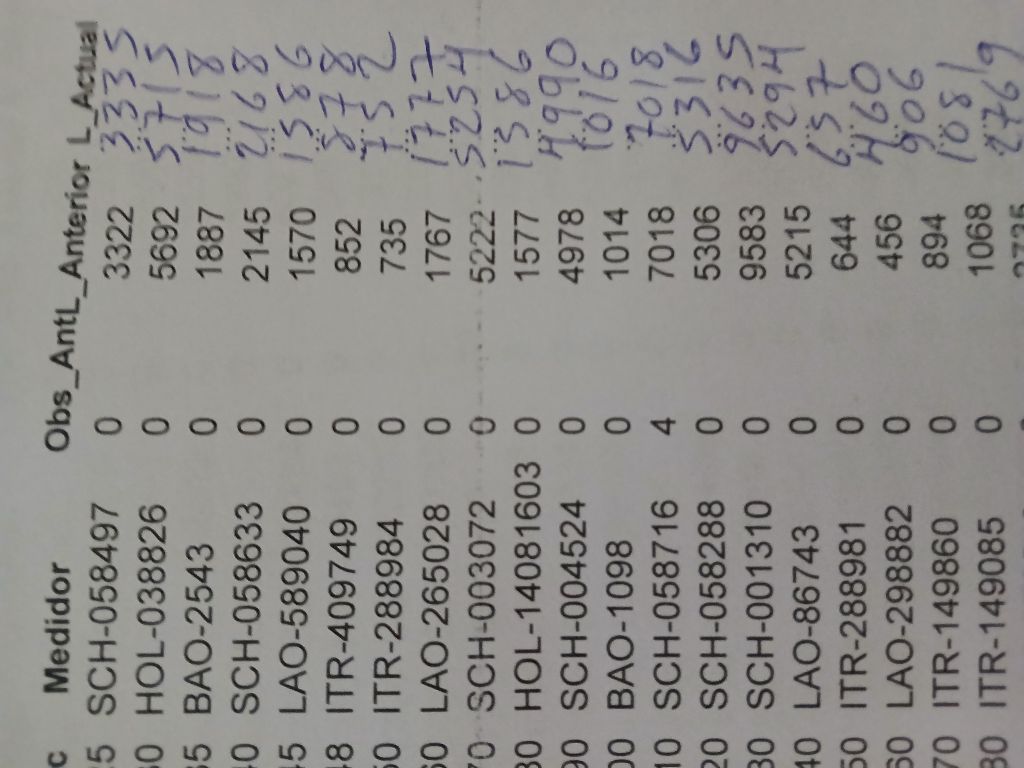 c Medidor Obs_AntL_Anterior L_Actual
25 SCH-058497 0 3322 3335
30 HOL-038826 0 5692 5715
35 BAO-2543 0 1887 1918
40 SCH-058633 0 2145 2168
45 LAO-589040 0 1570 1586
48 ITR-409749 0 852 878
50 ITR-288984 0 735 752
60 LAO-265028 0 1767 1777
70 SCH-003072 0 5222 5254
80 HOL-14081603 0 1577 1586
90 SCH-004524 0 4978 4990
00 BAO-1098 0 1014 1016
10 SCH-058716 4 7018 7018
20 SCH-058288 0 5306 5316
30 SCH-001310 0 9583 9635
40 LAO-86743 0 5215 5294
50 ITR-288981 0 644 657
60 LAO-298882 0 456 460
70 ITR-149860 0 894 906
80 ITR-149085 0 1068 1081
2735 2769